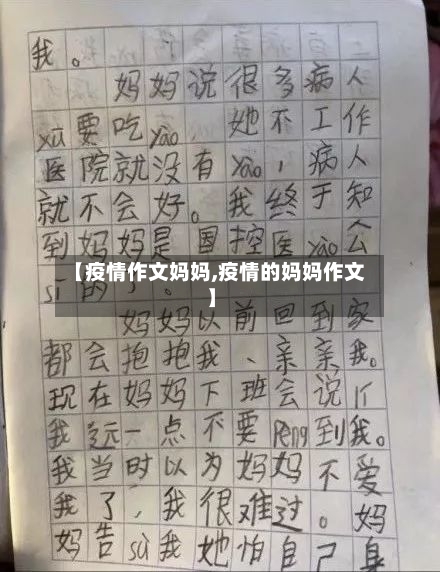 我。
妈妈说很多病人
xū要吃yào 她不工作
医院就没有yào，病人
就不会好。我终于知
到妈妈是国控医yào公
sī的了。
【疫情作文妈妈,疫情的妈妈作文
】
妈妈以前回到家
都会抱抱我、亲亲我。
现在妈妈下班会说让
我远一点不要pèng到我。
我当时以为妈妈不爱
我了，我很难过。妈
妈告sù我她怕自己身